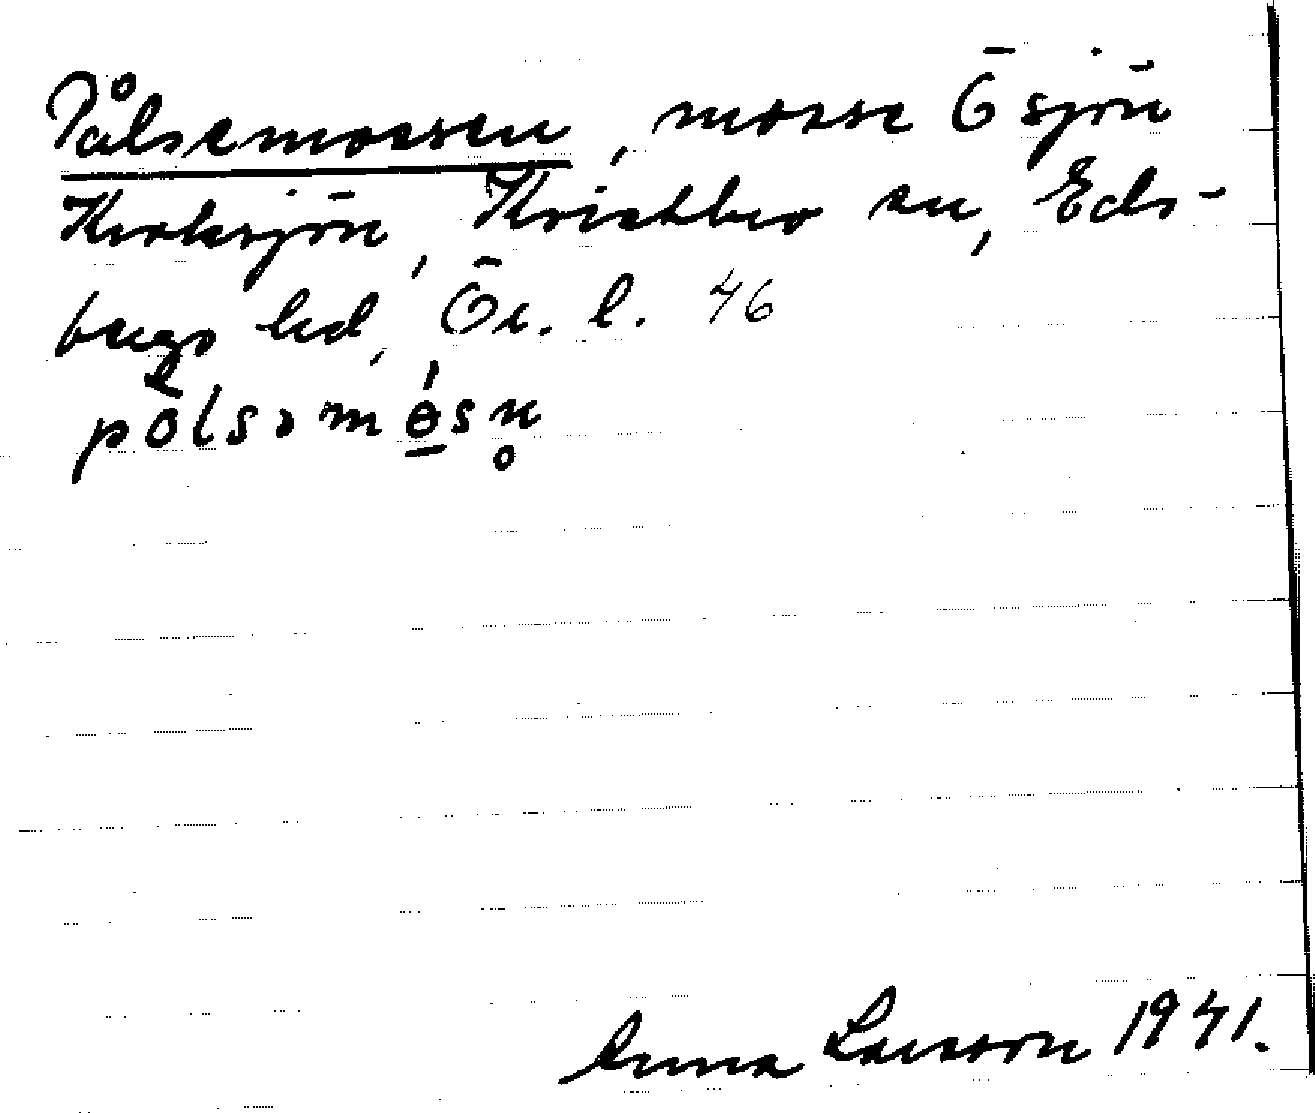 Pålsemossen, mosse Ö sjön
Kroksjön, Kristbergs sn, Eds-
bergs hd, Ög. l. 46
pålsɔmosn̥
Anna Larsson 1941.